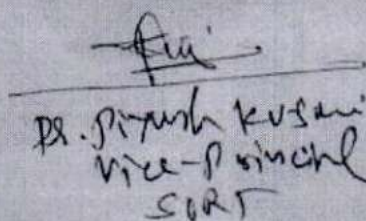 Dr. Piyush Kusmi
Vice-Principal
SIRT